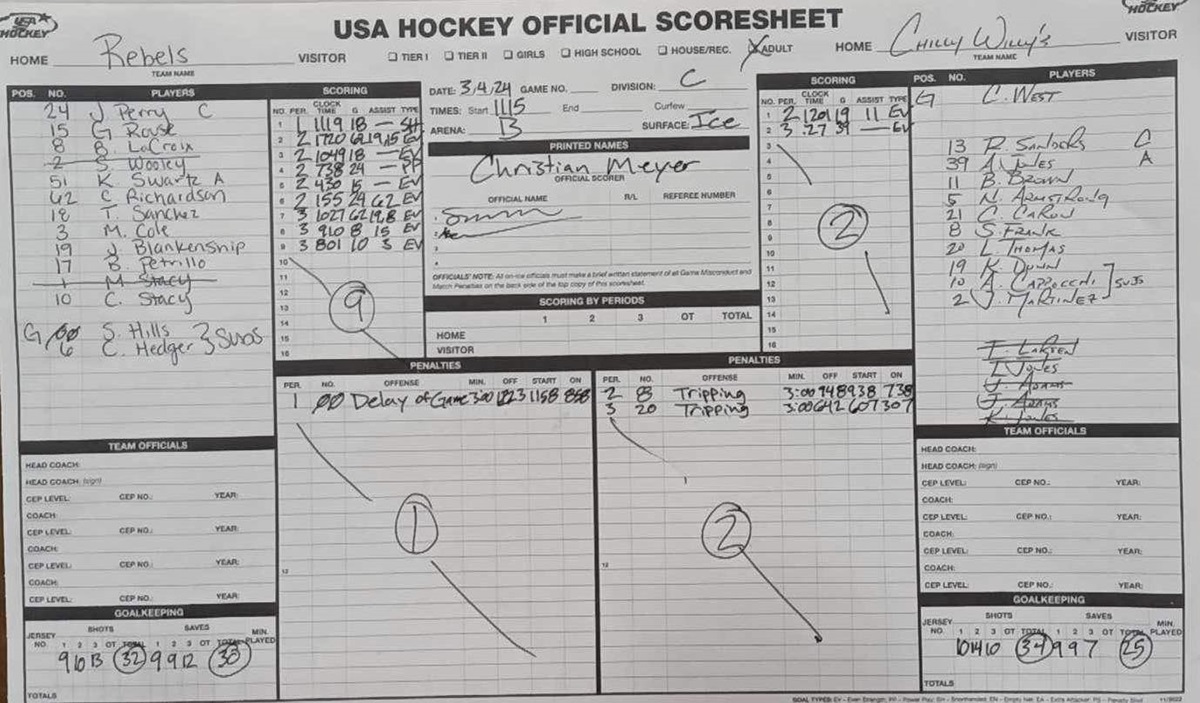 USA HOCKEY
USA HOCKEY OFFICIAL SCORESHEET
HOCKEY
HOME Rebels VISITOR
TEAM NAME
☐ TIER I ☐ TIER II ☐ GIRLS ☐ HIGH SCHOOL ☐ HOUSE/REC. ☒ ADULT
HOME CHILLY WILLY'S VISITOR
TEAM NAME
POS. NO. PLAYERS
24 J. Perry C
15 G. Rouse
8 B. LaCroix
2 S. Wooley
51 K. Swartz A
62 C. Richardson
18 T. Sanchez
3 M. Cole
19 J. Blankenship
17 B. Petrillo
1 M. Stacy
10 C. Stacy
G 00 S. Hills
6 C. Hedger } Subs
SCORING
NO. PER. CLOCK TIME G ASSIST TYPE
1 1 1119 18 — SH
2 2 1720 62 19,15 EV
3 2 1049 18 — EV
4 2 738 24 — PP
5 2 430 15 — EV
6 2 155 24 62 EV
7 3 1027 62 19,8 EV
8 3 910 8 15 EV
9 3 801 10 3 EV
10
11
12
13
14
15
16
9
DATE: 3/4/24 GAME NO. DIVISION: C
TIMES: Start 1115 End Curfew
ARENA: B SURFACE: Ice
PRINTED NAMES
Christian Meyer
OFFICIAL SCORER
OFFICIAL NAME R/L REFEREE NUMBER
1.
2.
3.
4.
OFFICIALS' NOTE: All on-ice officials must make a brief written statement of all Game Misconduct and
Match Penalties on the back side of the top copy of this scoresheet.
SCORING BY PERIODS
1 2 3 OT TOTAL
HOME
VISITOR
SCORING
NO. PER. CLOCK TIME G ASSIST TYPE
1 2 1201 19 11 EV
2 3 :27 39 — EV
3
4
5
6
7
8
9
10
11
12
13
14
15
16
2
POS. NO. PLAYERS
G C. WEST
13 R. C
39 A. A
11 B. BROWN
5 N. ARMSTRONG
21 C. CARON
8 S. FRANK
20 L. THOMAS
19 K. DUNN
10 A.
2 J. MARTINEZ ] SUBS
T. LARSEN
JONES
J. ADAMS
J. ADAMS
K. JONES
PENALTIES
PER. NO. OFFENSE MIN. OFF START ON
1 00 Delay of Game 3:00 1158 858
12
1
PENALTIES
PER. NO. OFFENSE MIN. OFF START ON
2 8 Tripping 3:00 948 938 738
3 20 Tripping 3:00 642 607 307
12
2
TEAM OFFICIALS
HEAD COACH:
HEAD COACH: (sign)
CEP LEVEL: CEP NO.: YEAR:
COACH:
CEP LEVEL: CEP NO.: YEAR:
COACH:
CEP LEVEL: CEP NO.: YEAR:
COACH:
CEP LEVEL: CEP NO.: YEAR:
GOALKEEPING
JERSEY NO. SHOTS SAVES MIN. PLAYED
1 2 3 OT TOTAL 1 2 3 OT TOTAL
9 10 13 32 9 9 12 30
TOTALS
TEAM OFFICIALS
HEAD COACH:
HEAD COACH: (sign)
CEP LEVEL: CEP NO.: YEAR:
COACH:
CEP LEVEL: CEP NO.: YEAR:
COACH:
CEP LEVEL: CEP NO.: YEAR:
COACH:
CEP LEVEL: CEP NO.: YEAR:
GOALKEEPING
JERSEY NO. SHOTS SAVES MIN. PLAYED
1 2 3 OT TOTAL 1 2 3 OT TOTAL
10 14 10 34 9 9 7 25
TOTALS
GOAL TYPES: EV - Even Strength; PP - Power Play; SH - Shorthanded; EN - Empty Net; EA - Extra Attacker; PS - Penalty Shot 11/2022